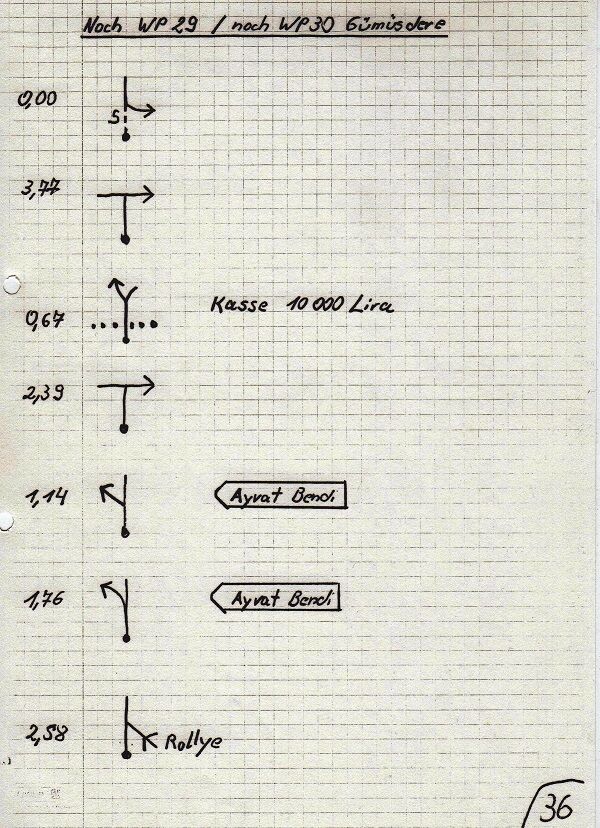 Noch WP 29 / noch WP 30 Gümüsdere
0,00
S
3,77
0,67 Kasse 10 000 Lira
2,39
1,14 Ayvat Bendi
1,76 Ayvat Bendi
2,58 Rollye
36